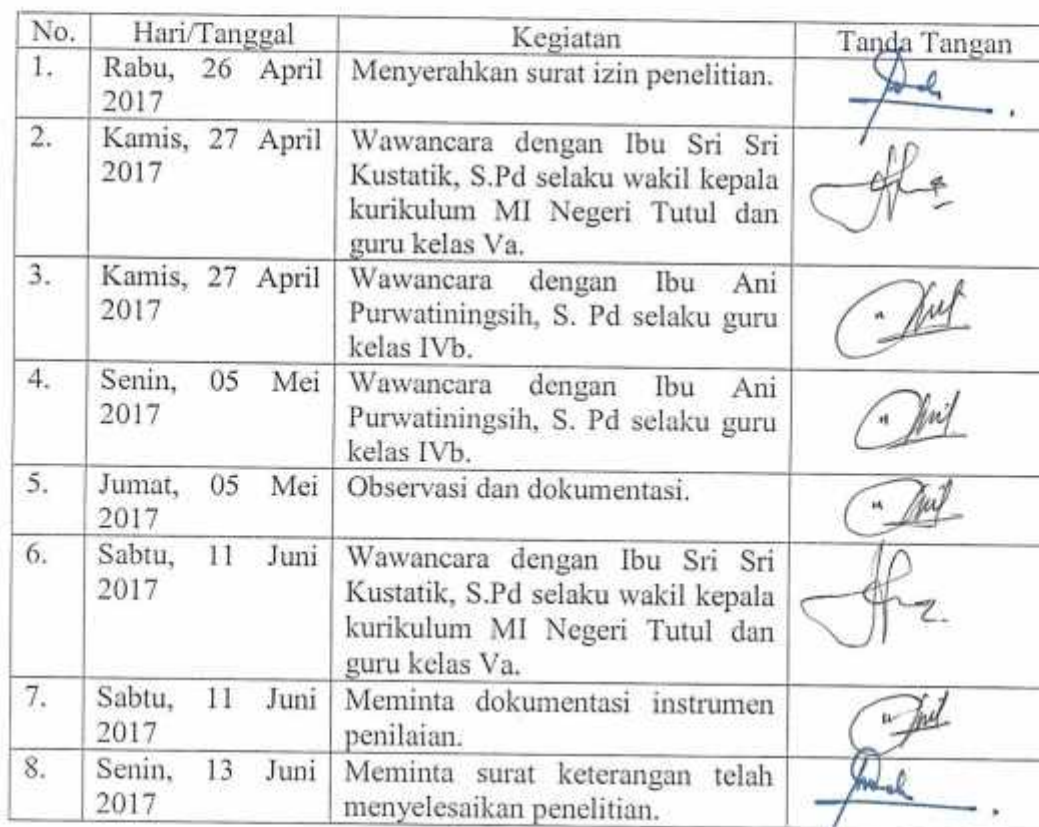 No. Hari/Tanggal Kegiatan Tanda Tangan
1. Rabu, 26 April Menyerahkan surat izin penelitian.
2017
2. Kamis, 27 April Wawancara dengan Ibu Sri Sri
2017 Kustatik, S.Pd selaku wakil kepala
kurikulum MI Negeri Tutul dan
guru kelas Va.
3. Kamis, 27 April Wawancara dengan Ibu Ani
2017 Purwatiningsih, S. Pd selaku guru
kelas IVb.
4. Senin, 05 Mei Wawancara dengan Ibu Ani
2017 Purwatiningsih, S. Pd selaku guru
kelas IVb.
5. Jumat, 05 Mei Observasi dan dokumentasi.
2017
6. Sabtu, 11 Juni Wawancara dengan Ibu Sri Sri
2017 Kustatik, S.Pd selaku wakil kepala
kurikulum MI Negeri Tutul dan
guru kelas Va.
7. Sabtu, 11 Juni Meminta dokumentasi instrumen
2017 penilaian.
8. Senin, 13 Juni Meminta surat keterangan telah
2017 menyelesaikan penelitian.